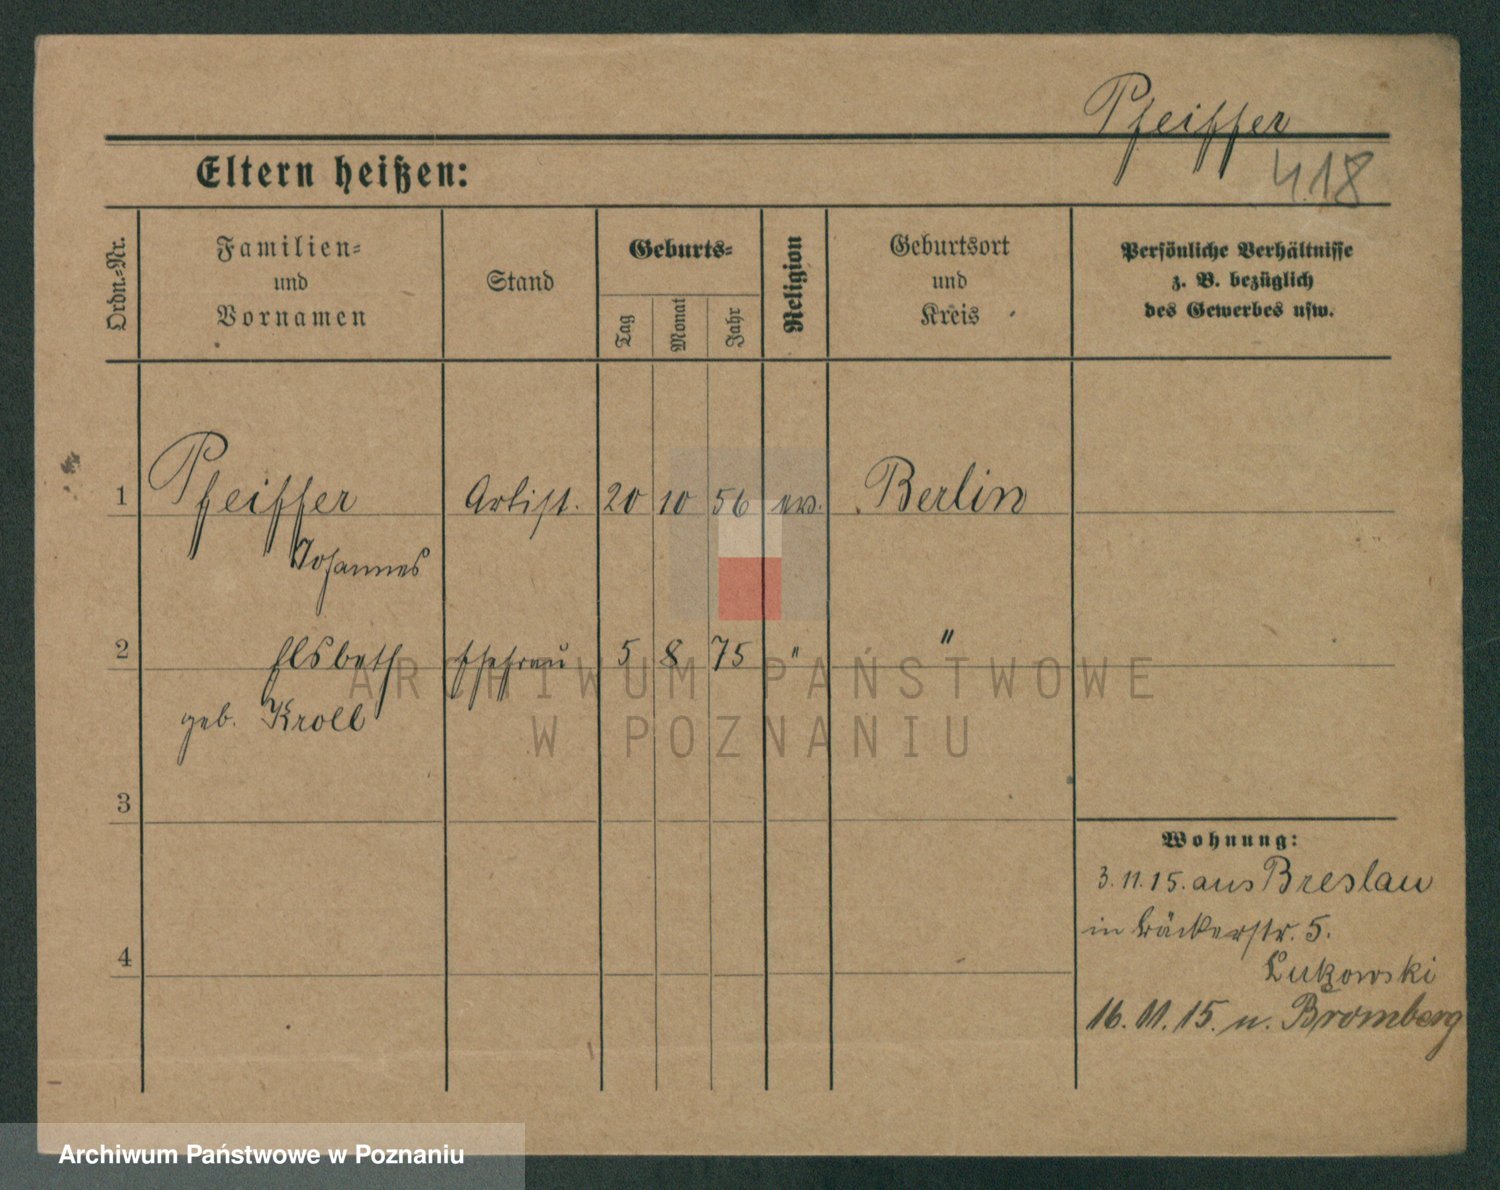 Pfeiffer
418
Eltern heißen:
Ordn.-Nr.
Familien-
und
Vornamen
Stand
Geburts-
Tag
Monat
Jahr
Religion
Geburtsort
und
Kreis
Persönliche Verhältnisse
z. B. bezüglich
des Gewerbes usw.
1 Pfeiffer Artist. 20 10 56 ev. Berlin
Johannes
2 Elsbeth Ehefrau 5 8 75 " "
geb. Kroll
3
4
Wohnung:
3.11.15. aus Breslau
in Bäckerstr. 5.
Lukowski
16.11.15. n. Bromberg
ARCHIWUM PAŃSTWOWE
W POZNANIU
Archiwum Państwowe w Poznaniu